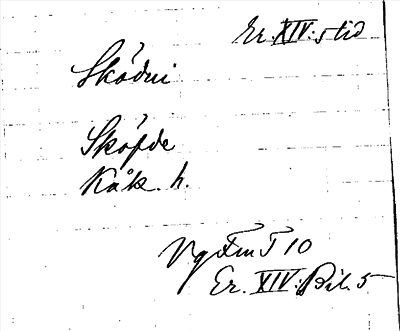 Er. XIV: 5 tid
Sködni
Sköfde
Kåk. h.
Vg Fm T 10
Er. XIV: Bil. 5